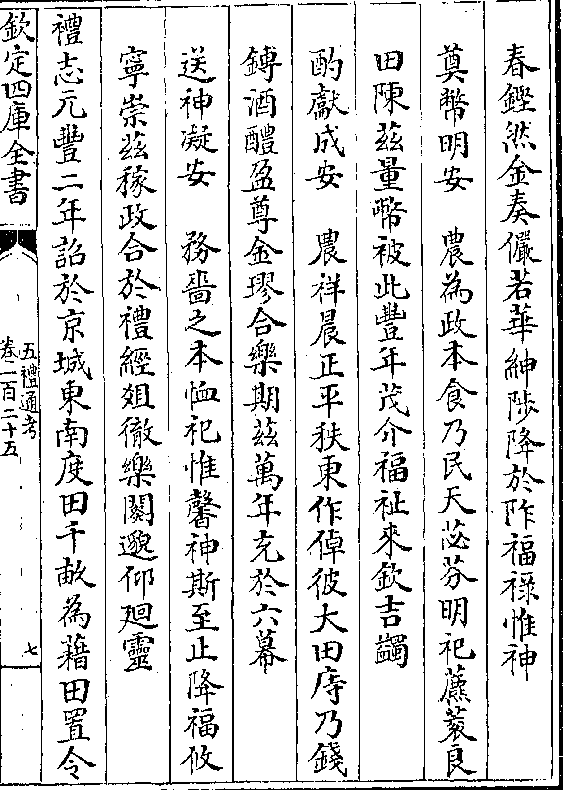 春鏗然金奏儼若華紳陟降於阼福祿惟神
奠幣明安　農為政本食乃民天苾芬明祀藨蓘良
田陳茲量幣被此豐年茂介福祉來欽吉蠲
酌獻成安　農祥晨正平秩東作倬彼大田庤乃錢
鎛酒醴盈尊金璆合樂期茲萬年充於六幕
送神凝安　務嗇之本恤祀惟馨神斯至止降福攸
寧崇茲稼政合於禮經俎徹樂闋邈仰廻靈
禮志元豐二年詔於京城東南度田千畝為藉田置令
欽定四庫全書
五禮通考
卷一百二十五
七